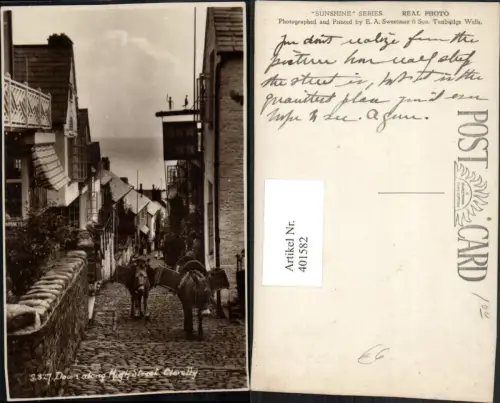 S.827. Down along High Street. Clovelly
"SUNSHINE" SERIES. REAL PHOTO
Photographed and Printed by E. A. Sweetman & Son. Tunbridge Wells.
You don't realize from the
picture how really steep
the street is, but it is the
quaintest place you'd ever
hope to see.
POST CARD
Artikel Nr.
401582